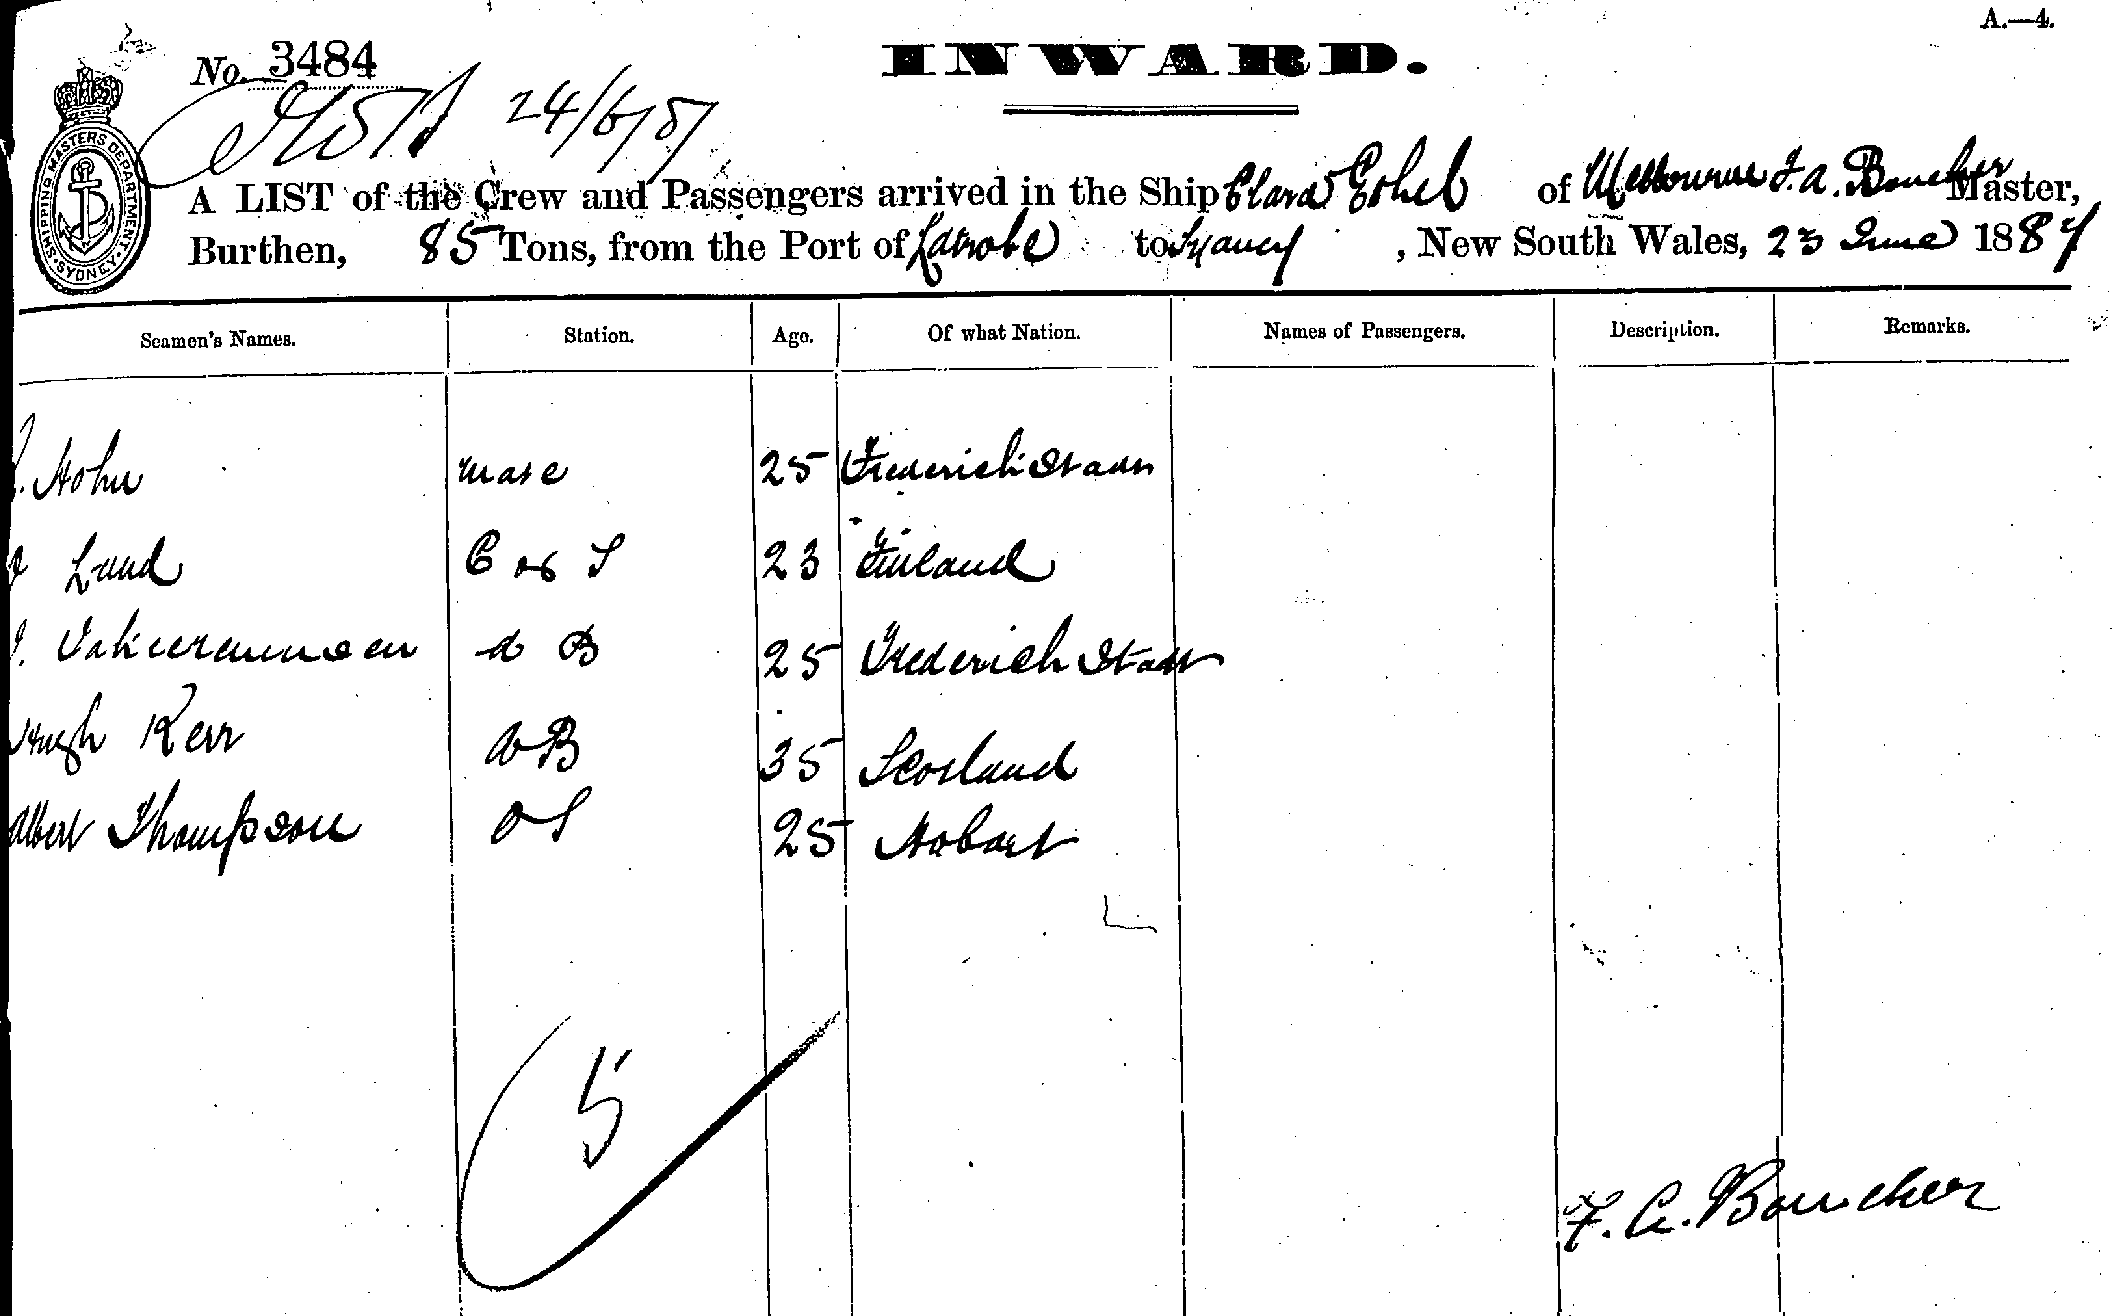 A.—4.
INWARD.
No. 3484
24/6/87
SHIPPING MASTERS DEPARTMENT SYDNEY
A LIST of the Crew and Passengers arrived in the Ship Clara Ethel of Melbourne F. A. Boucher Master,
Burthen, 85 Tons, from the Port of Latrobe to Sydney, New South Wales, 23 June 1887
Seamen's Names. Station. Age. Of what Nation. Names of Passengers. Description. Remarks.
Hohn mate 25 Frederichstadt
Lund C & S 23 Finland
A B 25 Frederich Stadt
Hugh Kerr AB 35 Scotland
Albert Thompson OS 25 Hobart
5
F. A. Boucher